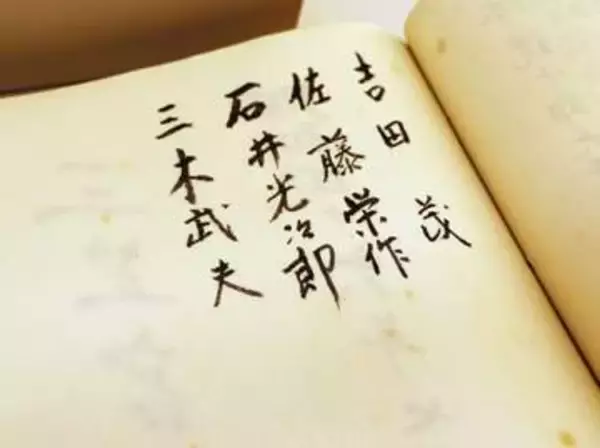 吉田茂
佐藤栄作
石井光次郎
三木武夫